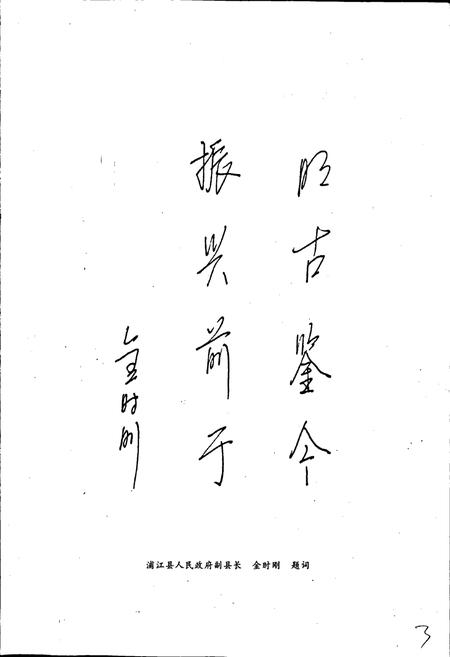 明古鉴今
振兴前于
金时刚
浦江县人民政府副县长 金时刚 题词
3